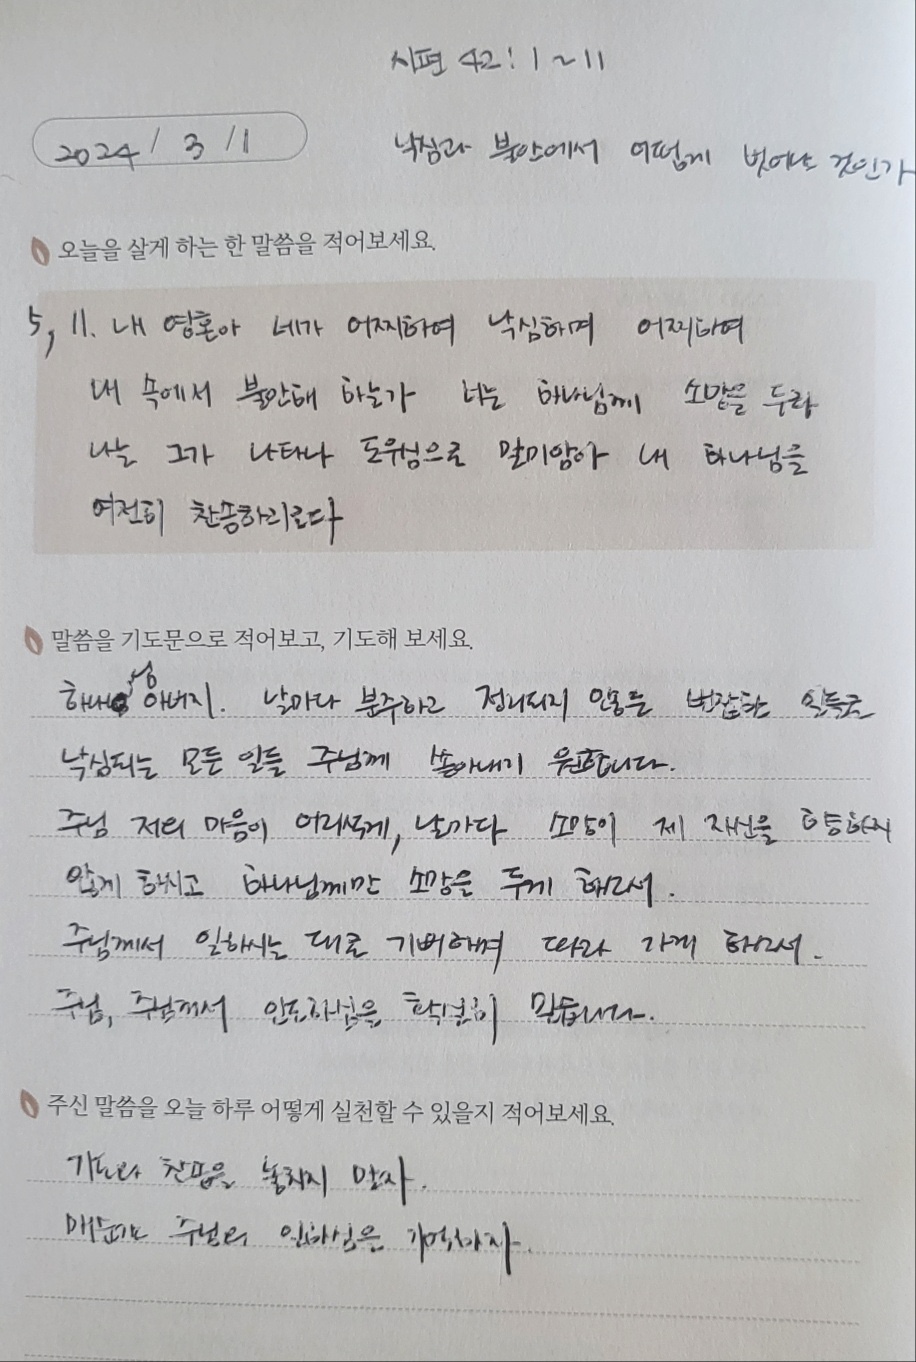 시편 42:1~11
2024/3/1
낙심과 불안에서 어떻게 벗어날 것인가
오늘을 살게 하는 한 말씀을 적어보세요.
5, 11. 내 영혼아 네가 어찌하여 낙심하며 어찌하여
내 속에서 불안해 하는가 너는 하나님께 소망을 두라
나는 그가 나타나 도우심으로 말미암아 내 하나님을
여전히 찬송하리로다
말씀을 기도문으로 적어보고, 기도해 보세요.
하나님 아버지. 날마다 분주하고 정리되지 않은 번잡한 일들로
낙심되는 모든 일들 주님께 쏟아내기 원합니다.
주님 저의 마음이 어리석게, 날가다 소망이 제 자신을 향하지
않게 하시고 하나님께만 소망을 두게 해주서.
주님께서 일하시는 대로 기뻐하며 따라 가게 하소서.
주님, 주님께서 인도하심을 확실히 믿습니다.
주신 말씀을 오늘 하루 어떻게 실천할 수 있을지 적어보세요.
기도와 찬양을 놓치지 말자.
매순간 주님의 일하심을 기억하자.